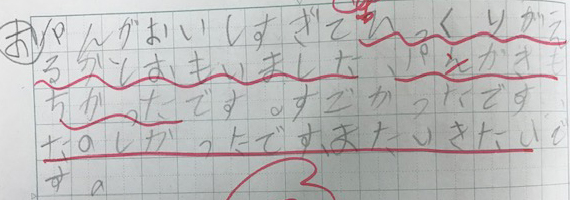 おパんがおいしすぎてひっくりがえ
るかとおもいました、パンがきも
ちかったです。すごかったです
たのしかったですまたいきたいで
す。